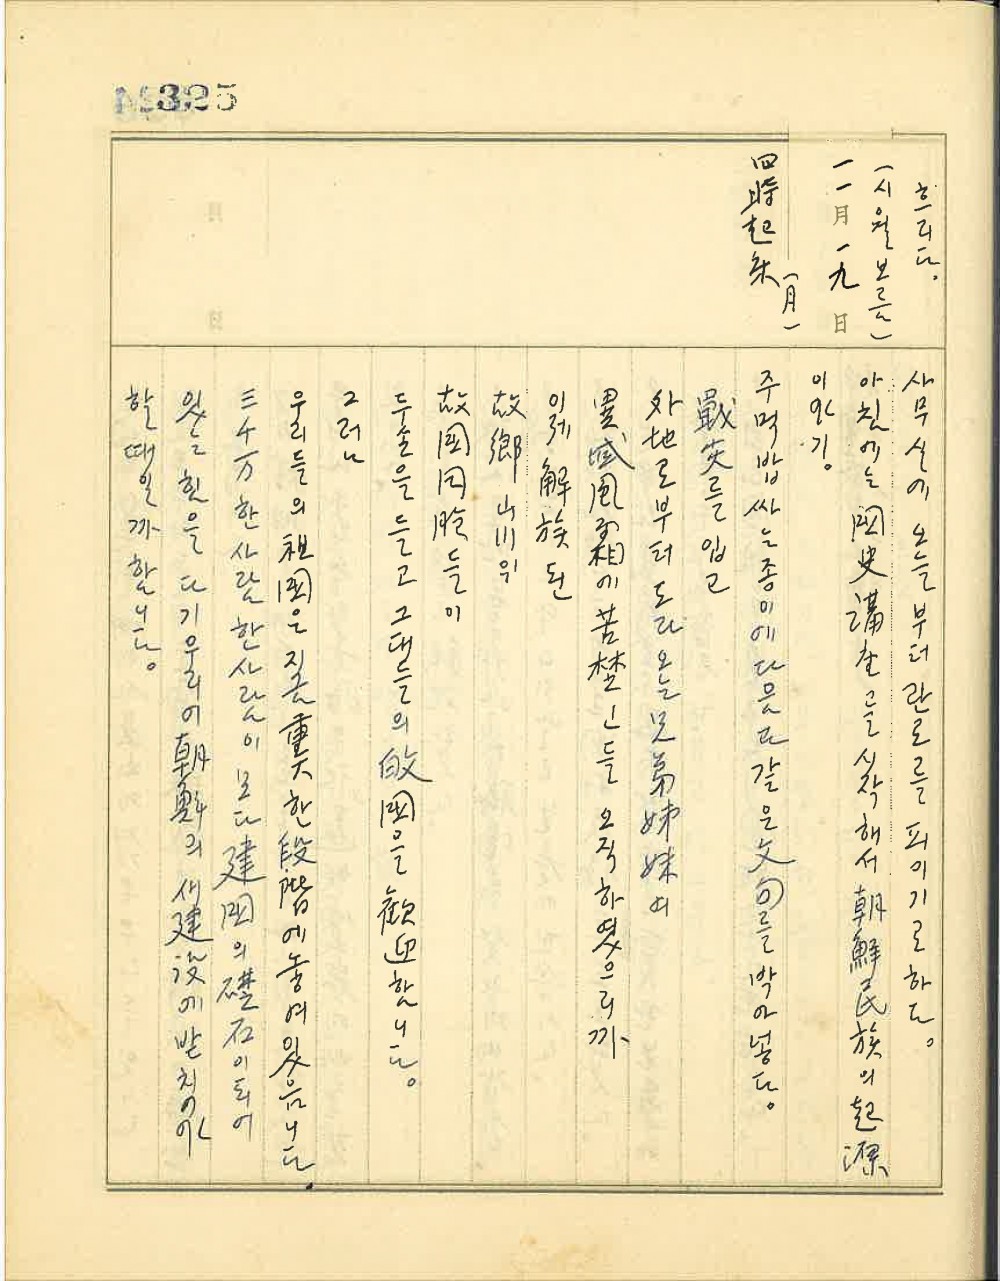 №325
흐리다.
(시월보름)
一一月 一九日
(月)
四時起床
사무실에 오늘부터 란로를 피이기로하다.
아침에는 國史講座를 시작해서 朝鮮民族의 起源
이얘기.
주먹밥싸는종이에 다음과 같은 文句를 박아넣다.
戰災를 입고
外地로부터 도라오는 兄弟姉妹여
異域風霜에 苦楚인들 오직하였으리까
이제 解放된
故鄕山川위
故國同胞들이
두손을 들고 그대들의 故國을 歡迎합니다.
그러나
우리들의 祖國은 지금 重大한 段階에 놓여있읍니다.
三千万 한사람 한사람이 모다 建國의 礎石이 되어
있는 힘을 다 기우리어 朝鮮의 새建設에 받치어야
할때일까 합니다.